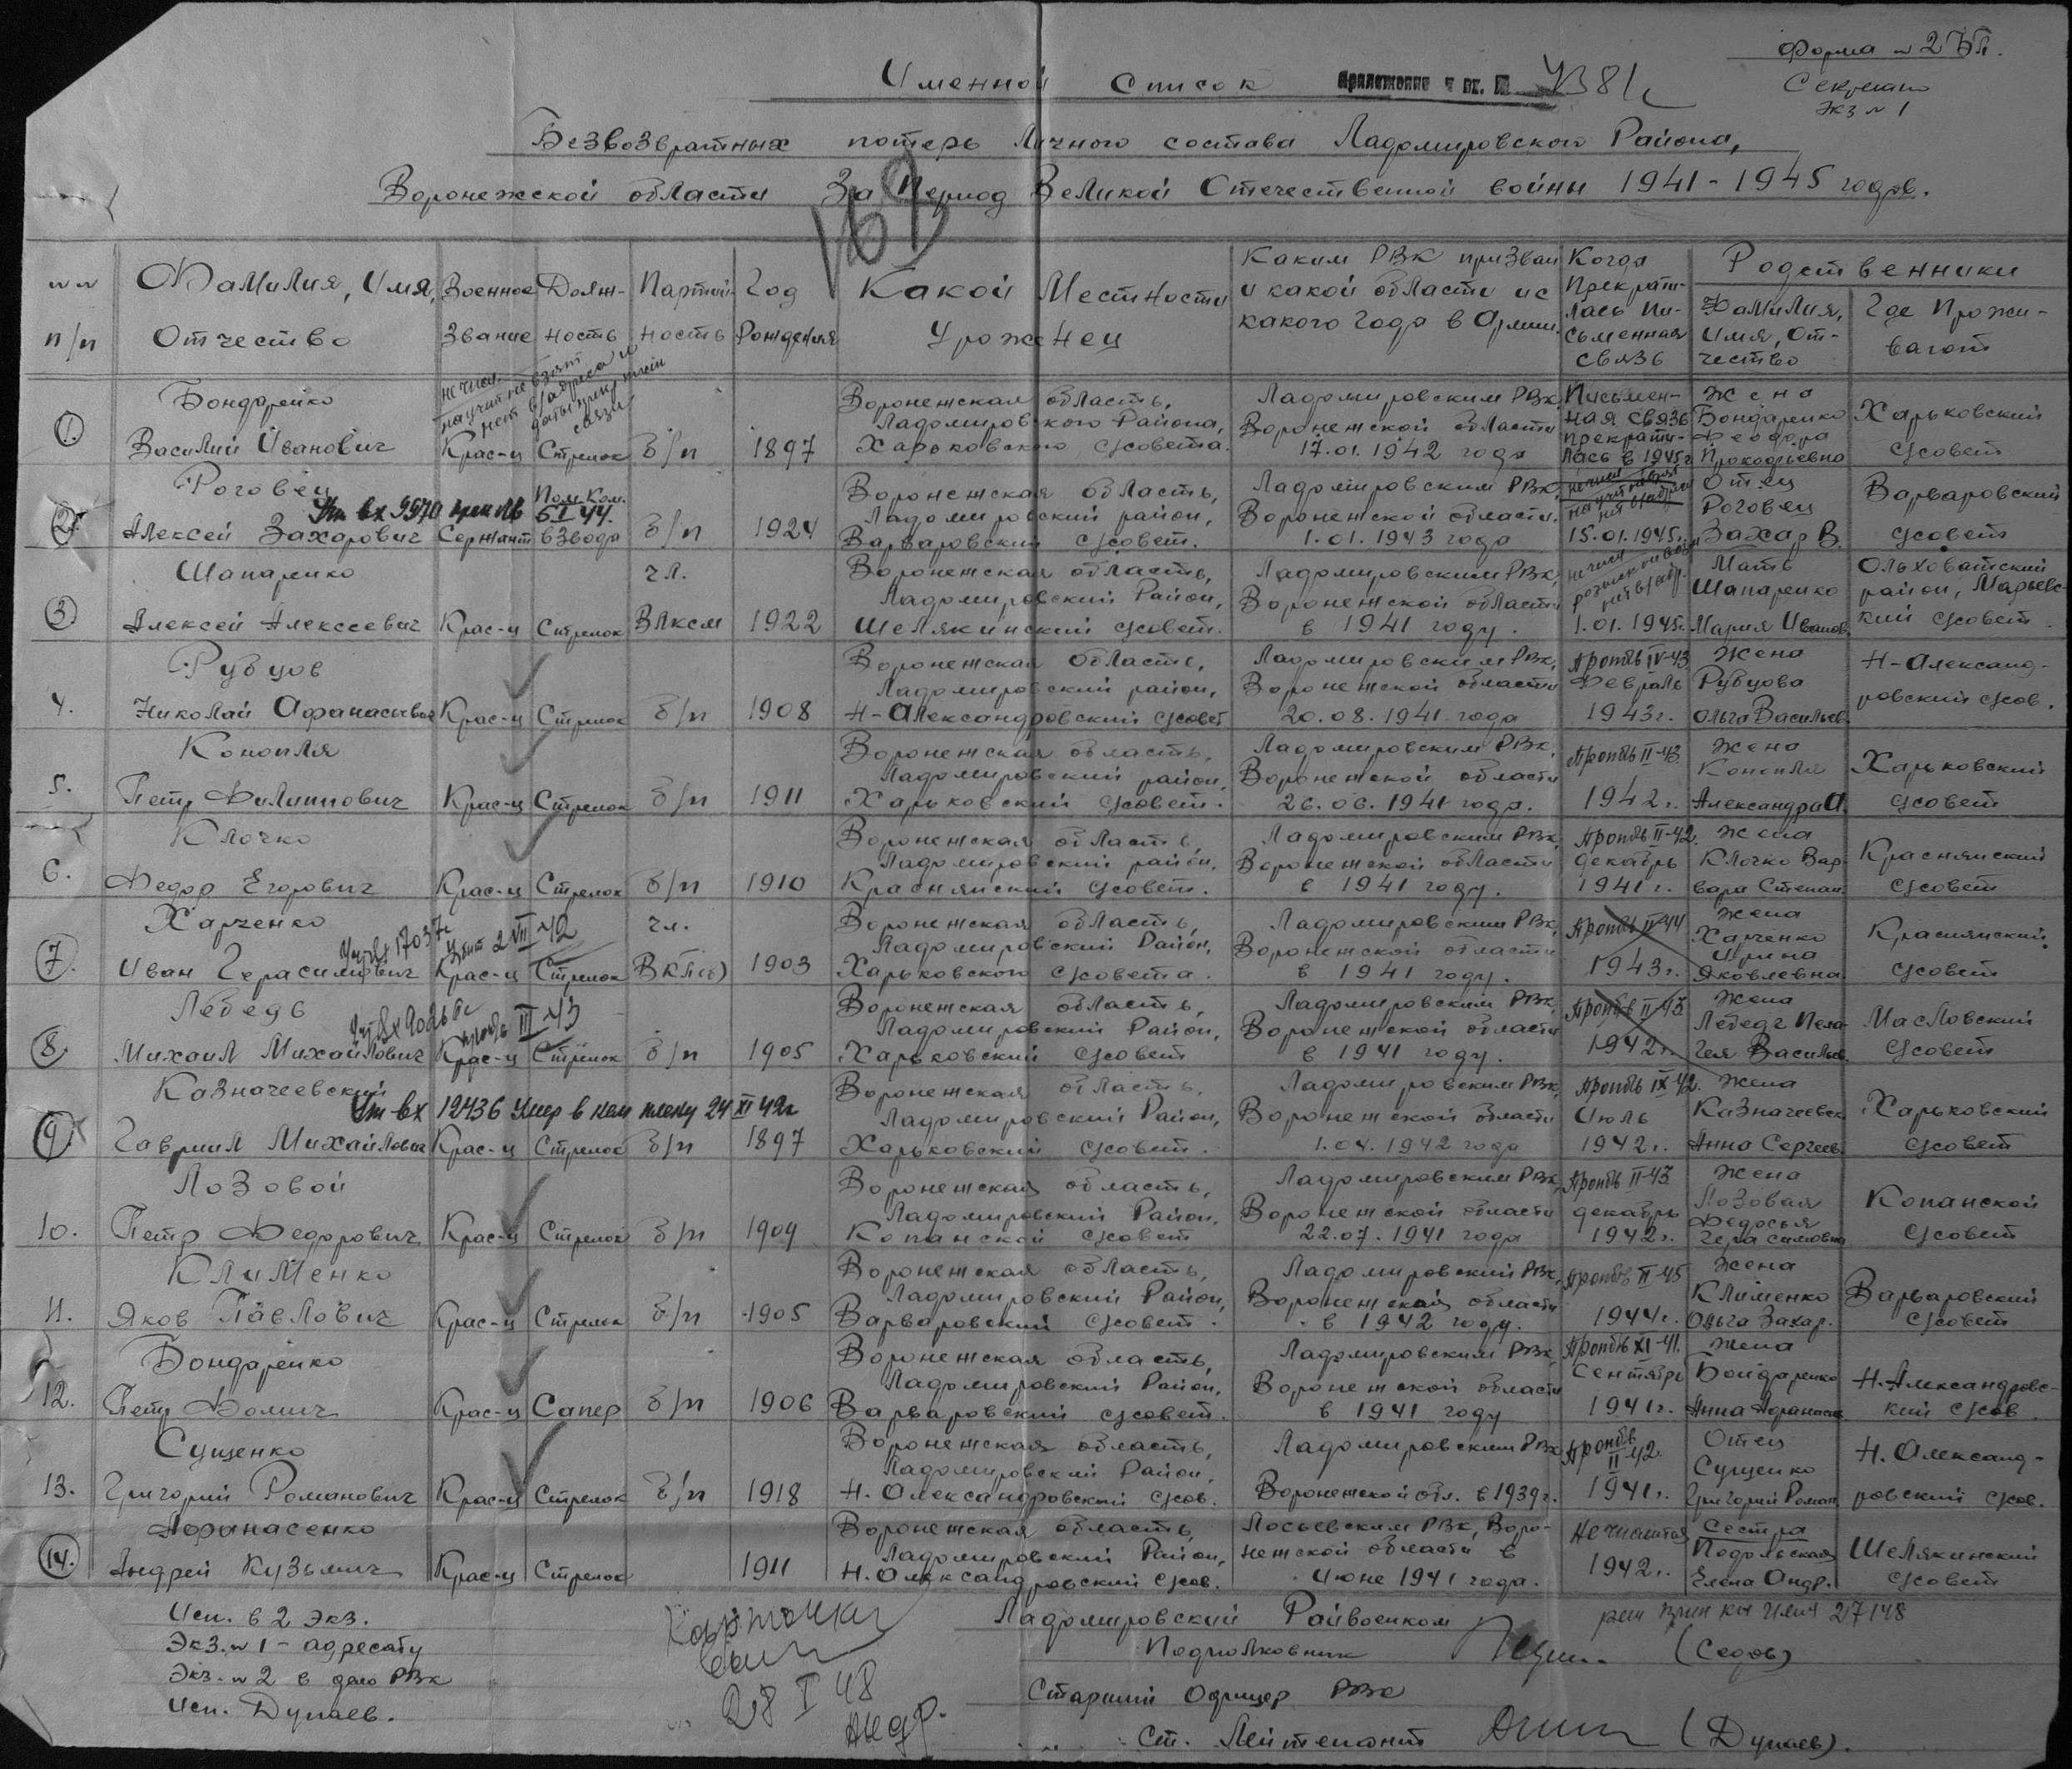 Форма № 2 БП.
Секретно
Экз № 1
Именной список Приложение к вх. №
Безвозвратных потерь личного состава Ладомировского Района,
Воронежской области За период Великой Отечественной войны 1941-1945 годов.
№№ п/п
Фамилия, Имя, Отчество
Военное Звание
Должность
Партийность
Год Рождения
Какой Местности Уроженец
Каким РВК призван и какой области и с какого года в Армии
Когда Прекратилась Письменная связь
Родственники
Фамилия, Имя, Отчество
Где Проживают
1. Бондаренко Василий Иванович Крас-ц Стрелок б/п 1897 Воронежская область, Ладомировского Района, Харьковского с/совета. Ладомировским РВК, Воронежской области 17.01.1942 года Письменная связь прекратилась в 1945г Жена Бондаренко Феодора Прокофьевна Харьковский с/совет
2. Роговец Алексей Захарович Сержант Пом. Ком. взвода б/п 1924 Воронежская область, Ладомировский район, Варваровский с/совет. Ладомировским РВК, Воронежской области. 1.01.1943 года 15.01.1945г. Отец Роговец Захар В. Варваровский с/совет
3. Шапаренко Алексей Алексеевич Крас-ц Стрелок чл. ВЛКСМ 1922 Воронежская область, Ладомировский Район, Шелякинский с/совет. Ладомировским РВК, Воронежской области в 1941 году. 1.01.1945г. Мать Шапаренко Мария Иванов. Ольховатский район, Марьевский с/совет.
4. Рубцов Николай Афанасьевич Крас-ц Стрелок б/п 1908 Воронежская область, Ладомировский район, Н-Александровский с/совет Ладомировским РВК, Воронежской области 20.08.1941 года Проп б/в IV-43 февраль 1943г. Жена Рубцова Ольга Васильев. Н-Александровский с/сов.
5. Конопля Петр Филиппович Крас-ц Стрелок б/п 1911 Воронежская область, Ладомировский район, Харьковский с/совет. Ладомировским РВК, Воронежской области 26.06.1941 года. Проп б/в II-43 1942г. Жена Конопля Александра А. Харьковский с/совет
6. Клочко Федор Егорович Крас-ц Стрелок б/п 1910 Воронежская область, Ладомировский район, Краснянский с/совет. Ладомировским РВК, Воронежской области в 1941 году. Проп б/в II-42. декабрь 1941г. Жена Клочко Варвара Степан. Краснянский с/совет
7. Харченко Иван Герасимович Крас-ц Стрелок чл. ВКП(б) 1903 Воронежская область, Ладомировский Район, Харьковского с/совета. Ладомировским РВК, Воронежской области в 1941 году. Проп б/в II-44 1943г. Жена Харченко Ирина Яковлевна Краснянский с/совет
Уч. вх 17037с Убит 2 VII 42
8. Лебедь Михаил Михайлович Крас-ц Стрелок б/п 1905 Воронежская область, Ладомировский Район, Харьковский с/совет Ладомировским РВК, Воронежской области в 1941 году. Проп б/в II-43 1942г. Жена Лебедь Пелагея Васильев. Масловский с/совет
9. Казначеевский Гавриил Михайлович Крас-ц Стрелок б/п 1897 Воронежская область, Ладомировский Район, Харьковский с/совет. Ладомировским РВК, Воронежской области 1.04.1942 года Проп б/в IX-42. Июль 1942г. Жена Казначеевск. Анна Сергеев. Харьковский с/совет
Уч вх 12436 Умер в нем плену 24 XI 42г
10. Лозовой Петр Федорович Крас-ц Стрелок б/п 1904 Воронежская область, Ладомировский Район, Копанской с/совет Ладомировским РВК, Воронежской области 22.07.1941 года Проп б/в II-43 декабрь 1942г. Жена Лозовая Федосья Герасимовна Копанской с/совет
11. Клименко Яков Павлович Крас-ц Стрелок б/п 1905 Воронежская область, Ладомировский Район, Варваровский с/совет. Ладомировский РВК, Воронежской области в 1942 году. Проп б/в II-45 1944г. Жена Клименко Ольга Захар. Варваровский с/совет
12. Бондаренко Петр Фомич Крас-ц Сапер б/п 1906 Воронежская область, Ладомировский Район, Варваровский с/совет. Ладомировским РВК, Воронежской области в 1941 году Проп б/в XI-41. Сентябрь 1941г. Жена Бондаренко Анна Афанасьев. Н.Александровский с/сов.
13. Сущенко Григорий Романович Крас-ц Стрелок б/п 1918 Воронежская область, Ладомировский Район, Н. Александровский с/сов. Ладомировским РВК Воронежской обл. в 1939г. Проп б/в II-42. 1941г. Отец Сущенко Григорий Роман. Н. Александровский с/сов.
14. Афанасенко Андрей Кузьмич Крас-ц Стрелок 1911 Воронежская область, Ладомировский Район, Н. Александровский с/сов. Лосьевским РВК, Воронежской области в Июне 1941 года. Не числится 1942г. Сестра Подольская Елена Андр. Шелякинский с/совет
Исп. в 2 экз.
Экз. № 1 - адресату
Экз. № 2 в дело РВК
Исп. Дунаев.
Карточки
28 I 48
Ладомировский Райвоенком
Подполковник (Седов)
Старший Офицер РВК
Ст. Лейтенант (Дунаев).